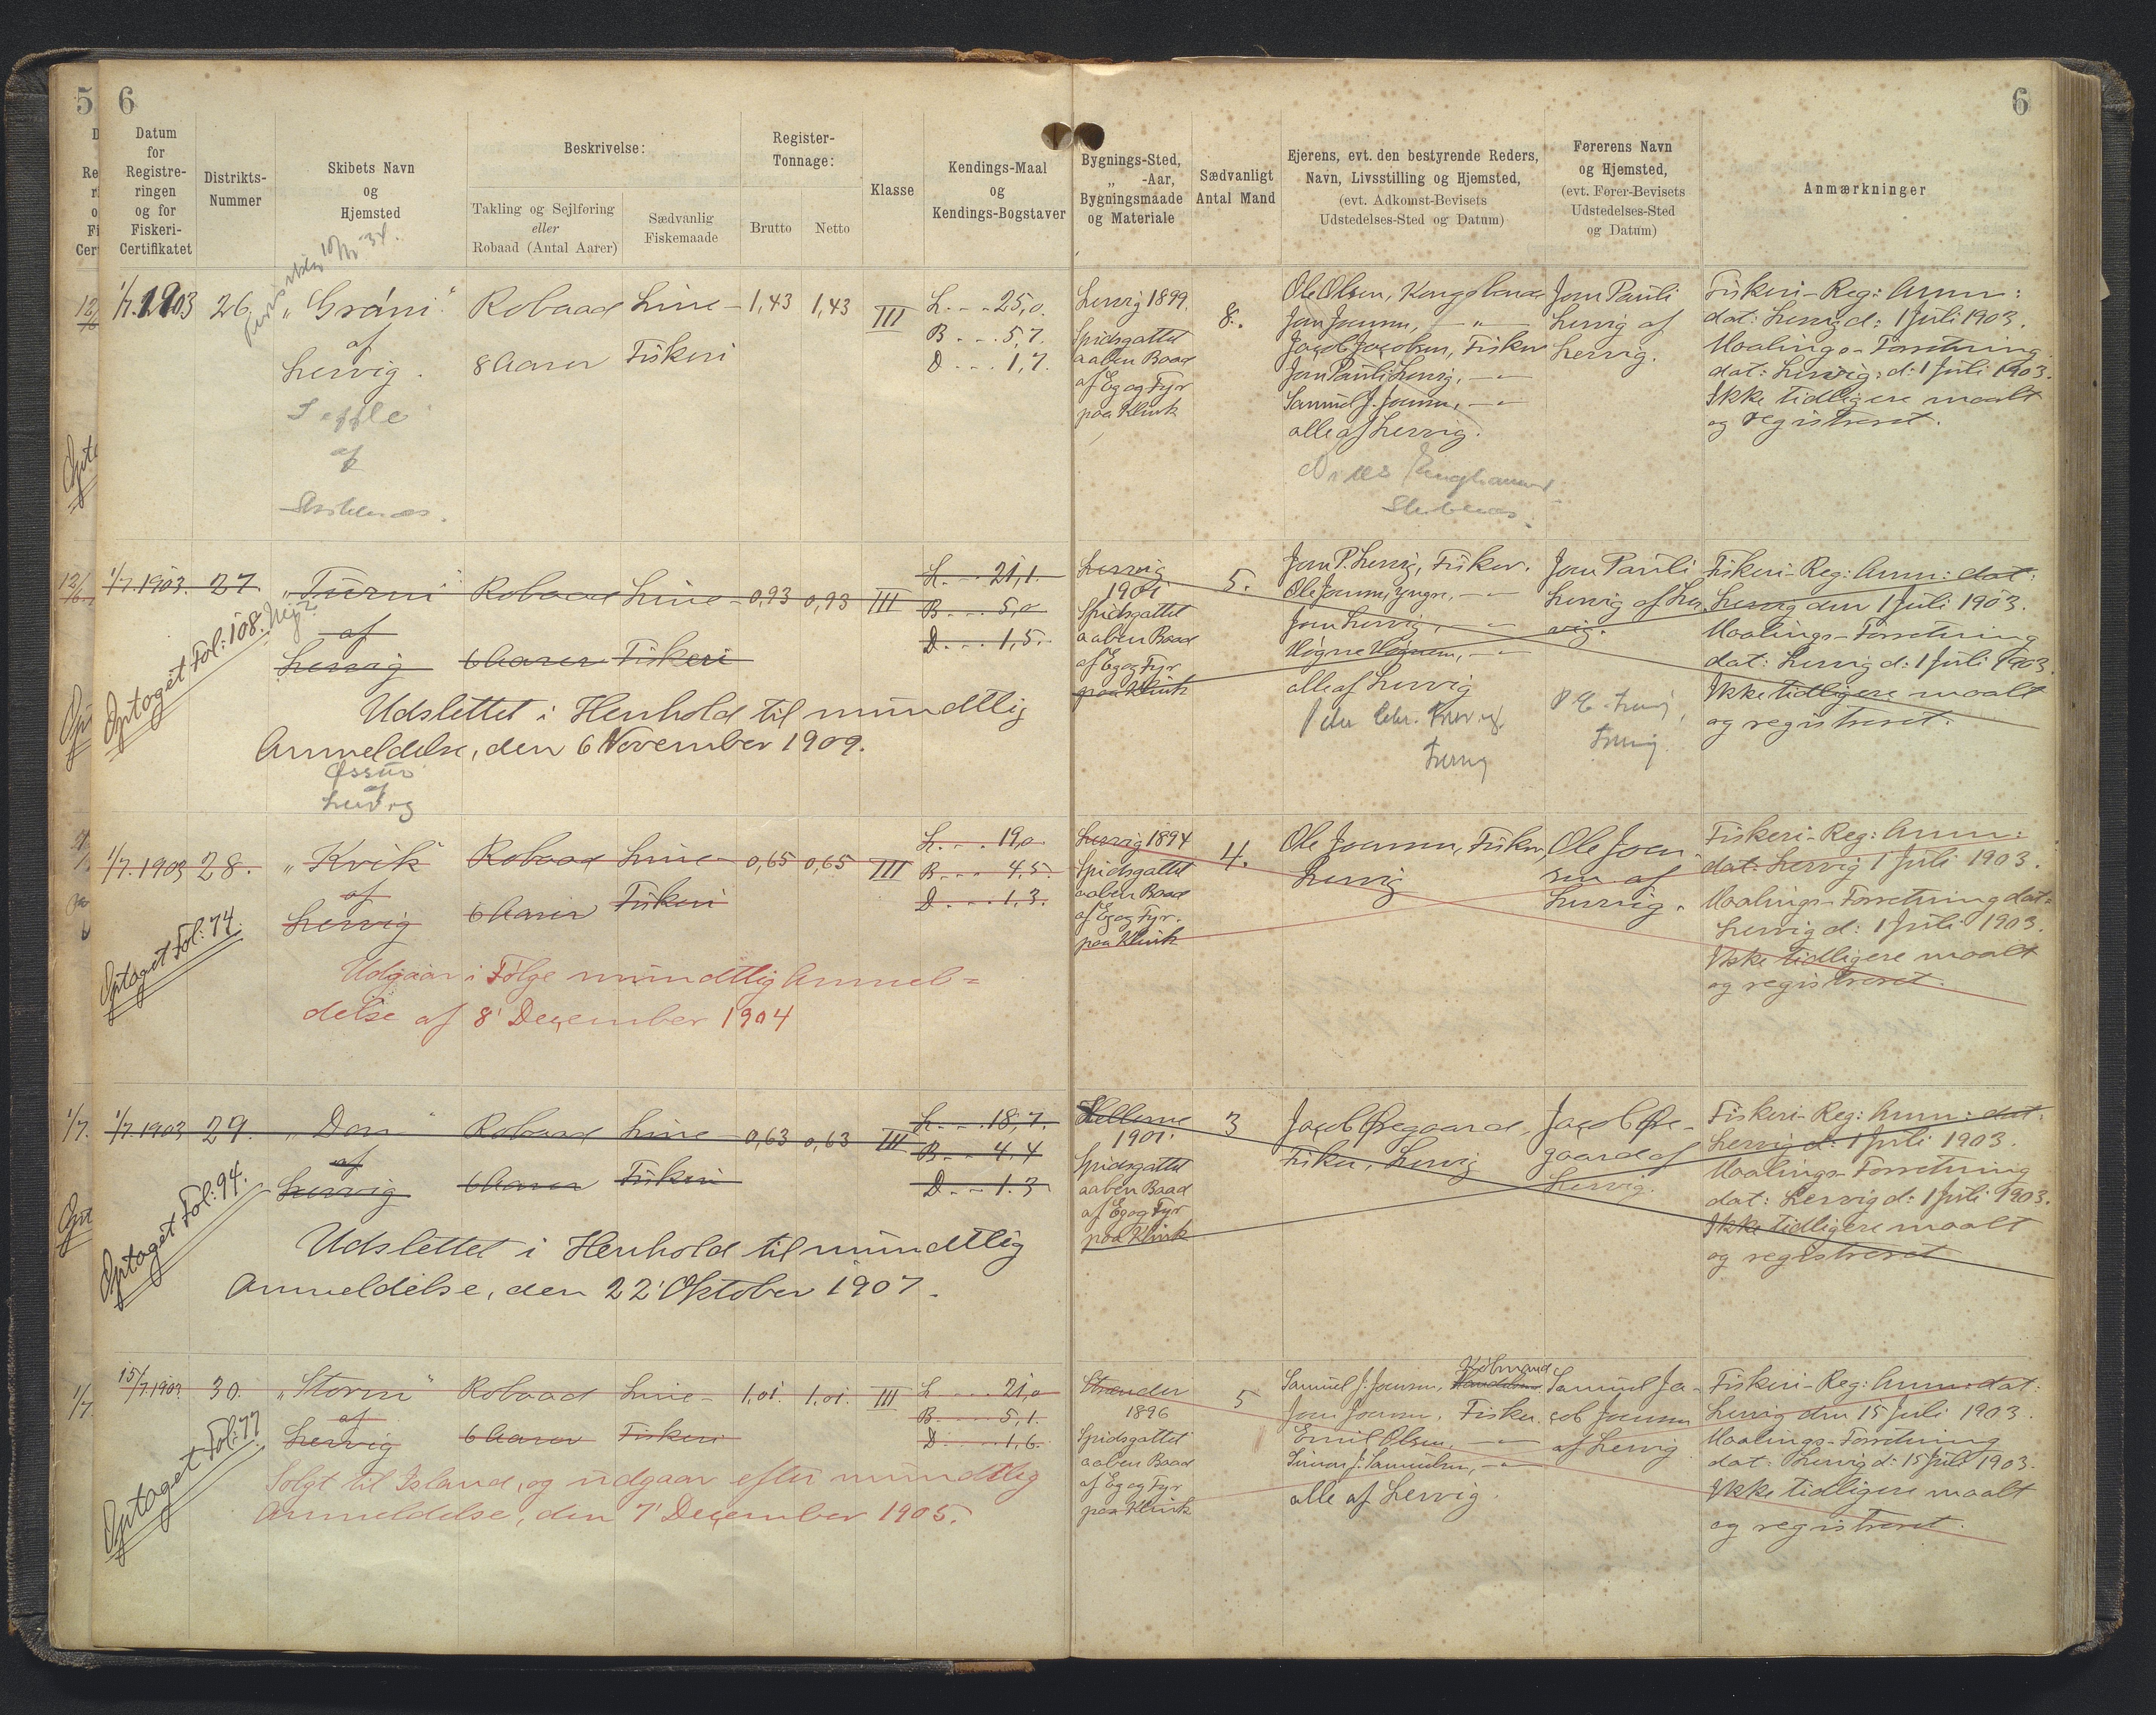 5
6
6
Datum
for
Registre-
ringen
og for
Fiskeri-
Certifikatet
Distrikts-
Nummer
Skibets Navn
og
Hjemsted
Beskrivelse:
Takling og Sejlføring
eller
Robaad (Antal Aarer)
Sædvanlig
Fiskemaade
Register-
Tonnage:
Brutto
Netto
Klasse
Kendings-Maal
og
Kendings-Bogstaver
Bygnings-Sted,
„ -Aar,
Bygningsmaade
og Materiale
Sædvanligt
Antal Mand
Ejerens, evt. den bestyrende Reders,
Navn, Livsstilling og Hjemsted,
(evt. Adkomst-Bevisets
Udstedelses-Sted og Datum)
Førerens Navn
og Hjemsted,
(evt. Fører-Bevisets
Udstedelses-Sted
og Datum)
Anmærkninger
1/7.1903
26.
„Gráni“
af
Lervig.
af
Robaad
8 Aarer
Line-
Fiskeri
1,43
1,43
III
L. - - 25,0.
B - - - 5,7.
D - - - 1,7.
Lervig 1899.
Spidsgattet
aaben Baad
af Eg og Fyr
paa Klink
8.
Ole Olsen, Kongsbonde
Jon Joensen, — „ —
Jacob Jacobsen, Fisker
Jon Pauli Lervig, — „ —
Samuel J. Joensen, — „ —
alle af Lervig.
Joen Pauli
Lervig af
Lervig.
Fiskeri-Reg: Anm:
dat: Lervig d: 1 Juli 1903.
Maalings-Forretning
dat: Lervig: d: 1 Juli 1903.
Ikke tidligere maalt
og registreret.
1/7.1903.
27.
„Turni“
af
Lervig
Robaad
6 Aarer
Line-
Fiskeri
0,93
0,93
III
L. - - 21,1.
B - - - 5,0
D - - - 1,5.
Optaget Fol: 108.
Udslettet i Henhold til mundtlig
Anmeldelse, den 6 November 1909.
Lervig
1901
Spidsgattet
aaben Baad
af Eg og Fyr
paa Klink
5.
Joen P. Lervig, Fisker.
Ole Joensen, yngre, — „ —
Joen Lervig, — „ —
Høgne Høgnesen, — „ —
alle af Lervig
Joen Pauli
Lervig af Ler
vig.
Fiskeri-Reg: Anm: dat:
Lervig den 1 Juli 1903.
Maalings-Forretning
dat: Lervig d: 1 Juli 1903.
Ikke tidligere maalt
og registreret.
Øssur
af
Lervig
1/7.1903
28.
„Kvik“
af
Lervig
Robaad
6 Aarer
Line-
Fiskeri
0,65
0,65
III
L. - - 19,0
B - - - 4,5.
D - - - 1,3.
Optaget Fol: 74.
Udgaar i Følge mundtlig Anmel=
delse af 8' December 1904
Lervig 1894
Spidsgattet
aaben Baad
af Eg og Fyr.
paa Klink
4.
Ole Joensen, Fisker,
Lervig
Ole Joen-
sen af
Lervig.
Fiskeri-Reg: Anm:
dat: Lervig 1 Juli 1903.
Maalings-Forretning dat:
Lervig d: 1 Juli 1903.
Ikke tidligere maalt
og registreret.
1/7.1903
29.
„Don“
af
Lervig
Robaad
6 Aarer
Line-
Fiskeri
0,63
0,63
III
L. - - 18,7.
B - - 4,4
D - - 1.3
Optaget Fol: 94.
Udslettet i Henhold til mundtlig
Anmeldelse, den 22' Oktober 1907.
Hellerne
1901.
Spidsgattet
aaben Baad
af Eg og Fyr
paa Klink
3
Jacob Øregaard,
Fisker, Lervig
Jacob Øre-
gaard af
Lervig.
Fiskeri-Reg: Anm: dat:
Lervig d: 1 Juli 1903.
Maalings-Forretning
dat: Lervig d: 1 Juli 1903.
Ikke tidligere maalt
og registreret
15/7.1903.
30.
„Storm“
af
Lervig
Robaad
6 Aarer
Line-
Fiskeri
1,01.
1,01.
III
L - - - 21,0
B - - - 5,1.
D - - - 1,6.
Optaget Fol: 77
Solgt til Island, og udgaar efter mundtlig
Anmeldelse, den 7' December 1905.
Strender
1896
Spidsgattet
aaben Baad
af Eg og Fyr
paa Klink
5
Købmand
Samuel J. Joensen,
Joen Joensen, Fisker.
Emil Olsen, — „ —
Simon J. Samuelsen, — „ —
alle af Lervig.
Samuel Ja-
cob Joensen
af Lervig
Fiskeri-Reg: Anm: dat:
Lervig den 15 Juli 1903.
Maalings-Forretning
dat: Lervig d: 15 Juli 1903.
Ikke tidligere maalt
og registreret.